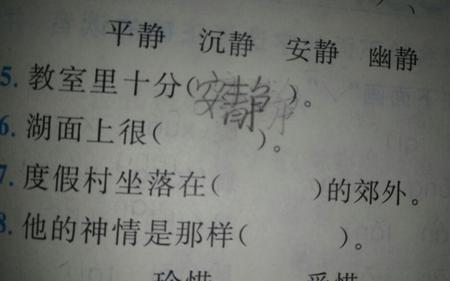 平静 沉静 安静 幽静
5. 教室里十分(安静)。
6. 湖面上很( )。
7. 度假村坐落在( )的郊外。
8. 他的神情是那样( )。